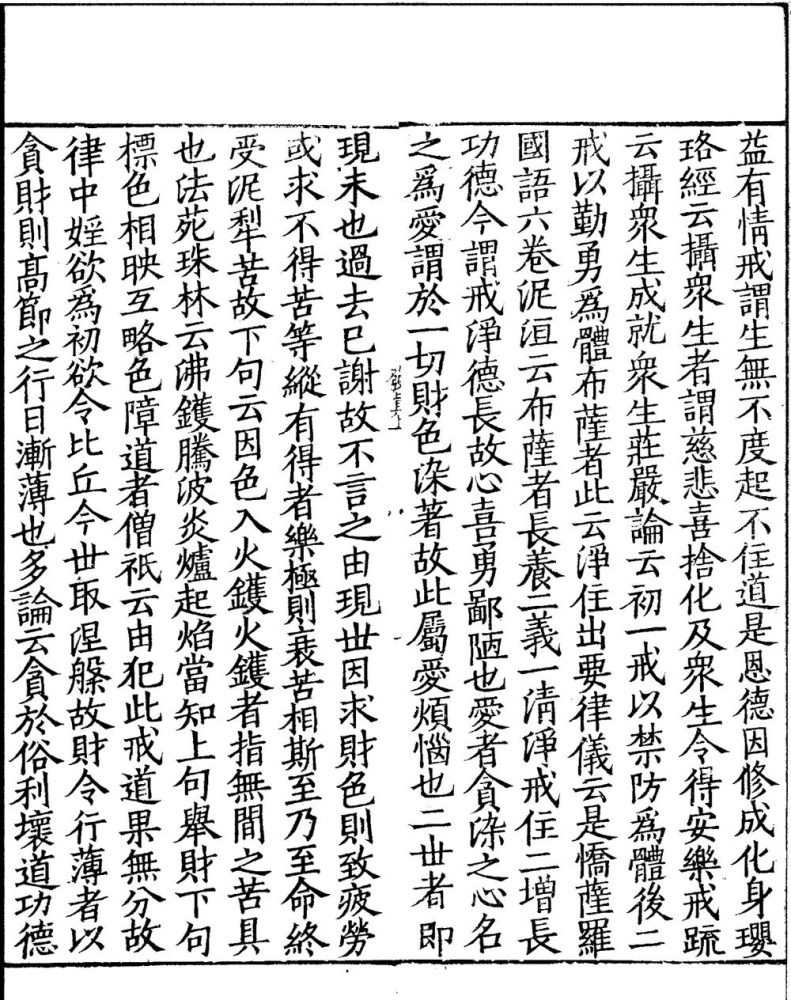 益有情戒謂生無不度起不住道是恩德因修成化身瓔
珞經云攝衆生者謂慈悲喜捨化及衆生令得安樂戒䟽
云攝衆生成就衆生莊嚴論云初一戒以禁防爲體後二
戒以勤勇爲體布薩者此云淨住出要律儀云是憍薩羅
國語六卷泥洹云布薩者長養二義一清淨戒住二增長
功德今謂戒淨德長故心喜勇鄙陋也愛者貪染之心名
之爲愛謂於一切財色染著故此屬愛煩惱也二丗者即
現未也過去已謝故不言之由現丗因求財色則致疲勞
或求不得苦等縱有得者樂極則衰苦相斯至乃至命終
受泥犂苦故下句云因色入火鑊火鑊者指無間之苦具
也法苑珠林云沸鑊騰波炎爐起焰當知上句舉財下句
標色相映互略色障道者僧祇云由犯此戒道果無分故
律中婬欲爲初欲令比丘今丗取涅槃故財令行薄者以
貪財則髙節之行日漸薄也多論云貪於俗利壞道功德